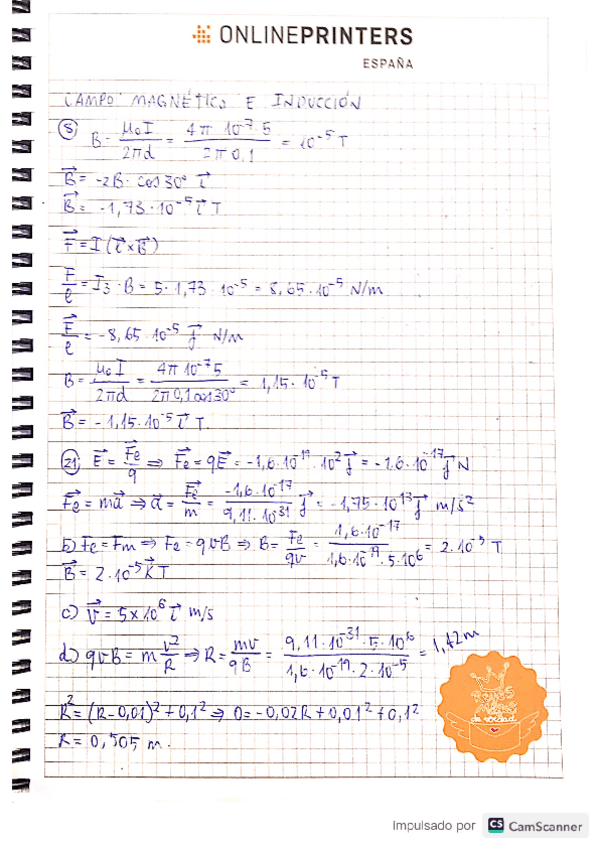 ONLINEPRINTERS
ESPAÑA
CAMPO MAGNÉTICO E INDUCCIÓN
⑧ B = μ₀I / 2πd = 4π 10⁻⁷·5 / 2π 0,1 = 10⁻⁵ T
B⃗ = -2B · cos30° i⃗
B⃗ = -1,73·10⁻⁵ i⃗ T
F⃗ = I (l⃗ x B⃗)
F/l = I₃ · B = 5·1,73·10⁻⁵ = 8,65·10⁻⁵ N/m
F⃗/l = -8,65·10⁻⁵ j⃗ N/m
B = μ₀I / 2πd = 4π 10⁻⁷5 / 2π0,1cos30° = 1,15·10⁻⁵ T
B⃗ = -1,15·10⁻⁵ i⃗ T.
㉑ E⃗ = F⃗e/q ⇒ F⃗e = qE⃗ = -1,6·10⁻¹⁹·10² j⃗ = -1.6·10⁻¹⁷ j⃗ N
F⃗e = ma⃗ ⇒ a⃗ = F⃗e/m = -1,6·10⁻¹⁷ / 9,11·10⁻³¹ j⃗ = -1,75·10¹³ j⃗ m/s²
b) Fe = Fm ⇒ Fe = qvB ⇒ B = Fe/qv = 1,6·10⁻¹⁷ / 1,6·10⁻¹⁹·5·10⁶ = 2·10⁻⁵ T
B⃗ = 2·10⁻⁵ K⃗ T
c) v⃗ = 5x10⁶ i⃗ m/s
d) qvB = m v²/R ⇒ R = mv/qB = 9,11·10⁻³¹·5·10⁶ / 1,6·10⁻¹⁹·2·10⁻⁵ = 1,42m
R² = (R-0,01)² + 0,1² ⇒ 0 = -0,02R + 0,01² + 0,1²
R = 0,505 m.
REYES
de verdad
Impulsado por CS CamScanner